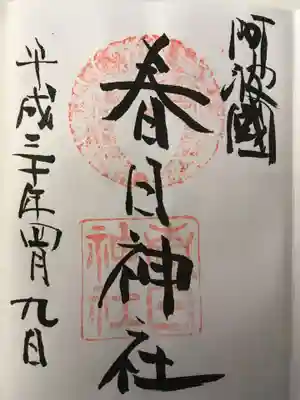 阿波國
春日神社
平成三十年四月九日
春日
神社